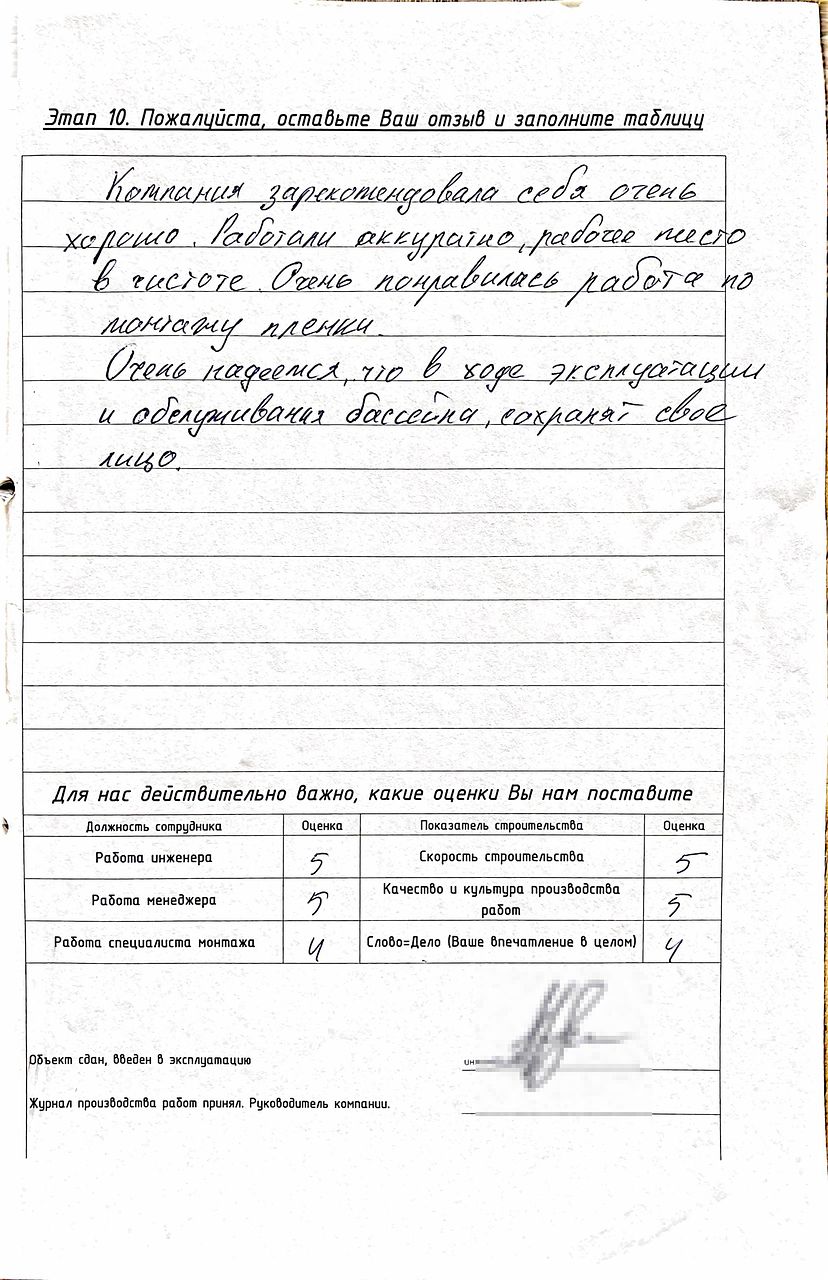 Этап 10. Пожалуйста, оставьте Ваш отзыв и заполните таблицу
Компания зарекомендовала себя очень
хорошо. Работали аккуратно, рабочее место
в чистоте. Очень понравилась работа по
монтажу пленки.
Очень надеемся, что в ходе эксплуатации
и обслуживания бассейна, сохранят свое
лицо.
Для нас действительно важно, какие оценки Вы нам поставите
Должность сотрудника Оценка Показатель строительства Оценка
Работа инженера 5 Скорость строительства 5
Работа менеджера 5 Качество и культура производства работ 5
Работа специалиста монтажа 4 Слово=Дело (Ваше впечатление в целом) 4
Объект сдан, введен в эксплуатацию
Журнал производства работ принял. Руководитель компании.